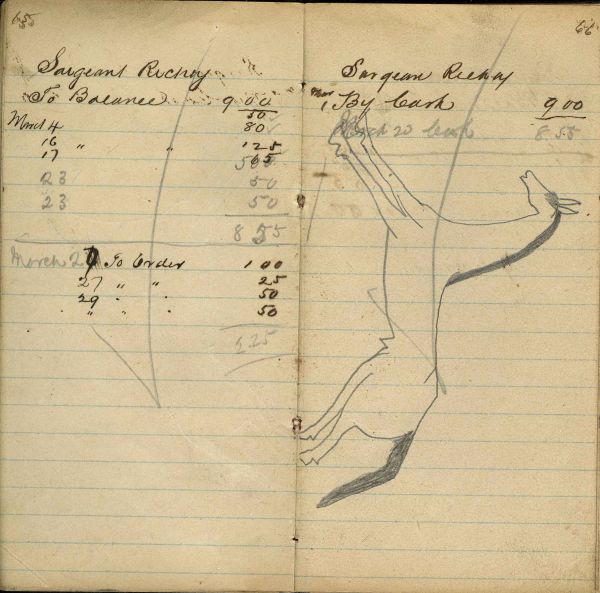 65
Sargeant Richey
To Balance 9 00
50
March 4 80
16 " " 1 25
17
23 50
23 50
8 55
March 27 To Order 1 00
27 " " 25
29 " " 50
" " " 50
2 25
66
Sargean Richey
1 By Cash 9 00
March 20 Cash 8 55